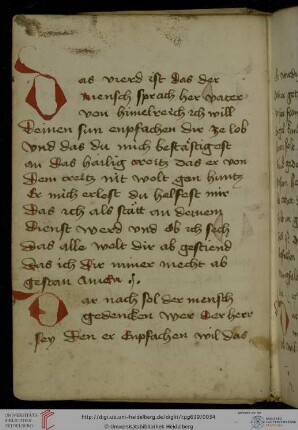 Das vierd ist das der
mensch sprach her vater
von himelreich ich will
deinen sun enpfachen dir ze lob
und das du mich bestätigest
an das hailig creitz das er von
dem creitz nit wolt gon huntz
Er mich erlost du helfest mir
das ich als stätt an deinem
dienst werd und ob ich sech
das alle welt dir ab gestiend
das ich dir nimer mecht ab
gestan Amen
Dar nach sol der mensch
gedencken wer der herr
sey den er enpfachen wil das
http://digi.ub.uni-heidelberg.de/diglit/cpg639/0094
© Universitätsbibliothek Heidelberg
UNIVERSITÄTS-
BIBLIOTHEK
HEIDELBERG